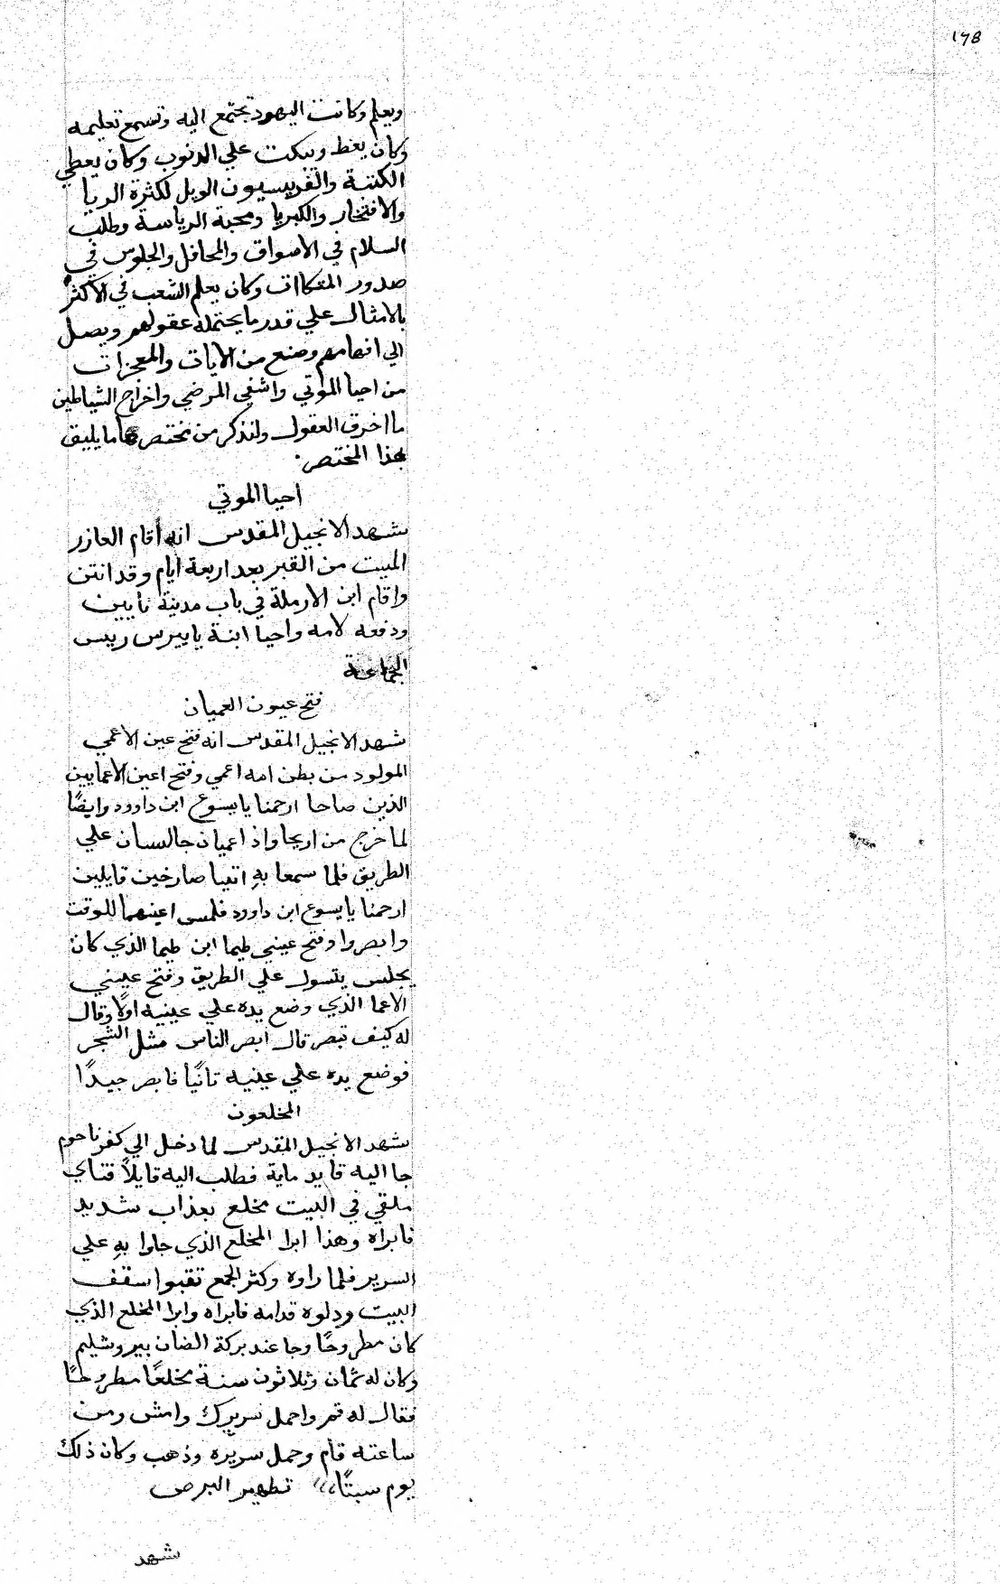 ١٧٨
ويعلم وكانت اليهود تجتمع اليه وتسمع تعليمه
وكان يعظ ويبكت علي الدنوب وكان يعطي
الكتبة والفريسيون الويل لكثرة الريا
والافتخار والكبريا ومحبة الرياسة وطلب
السلام في الاصواق والمحافل والجلوس في
صدور المتكاات وكان يعلم الشعب في الاكثر
بالامثال علي قدر ما يحتمله عقولهم ويصل
الي افهامهم وصنع من الايات والمعجزات
من احيا الموتي واشفي المرضي واخراج الشياطين
ما اخرق العقول ولنذكر من مختصرها ما يليق
بهذا المختصر٠
احيا الموتي
شهد الانجيل المقدس انه أقام العازر
الميت من القبر بعد اربعة ايام وقد انتن
واقام ابن الارملة في باب مدينة نايين
ودفعه لامه واحيا ابنة يابيرس رييس
الجماعة
فتح عيون العميان
شهد الانجيل المقدس انه فتح عين الاعمي
المولود من بطن امه اعمي وفتح اعين الاعمايين
الذين صاحا ارحمنا يا يسوع ابن داوود وايضًا
لما خرج من اريحا واذ اعميان جالسان علي
الطريق فلما سمعا بهِ اتيا صارخين قايلين
ارحمنا يا يسوع ابن داوود فلمس اعينهما للوقت
وابصروا وفتح عيني طيما ابن طيما الذي كان
يجلس يتسول علي الطريق وفتح عيني
الاعما الذي وضع يده علي عينيه اولًا وقال
له كيف تبصر قال ابصر الناس مثل الشجر
فوضع يده علي عينيه تانيًا فابصر جيدًا
المخلعون
شهد الانجيل المقدس لما دخل الي كفرناحوم
جا اليه قايد ماية فطلب اليه قايلاً فتاي
ملقي في البيت مخلع بعذاب شديد
فابراه وهذا ابرا المخلع الذي جاوا بهِ علي
السرير فلما راوه وكثر الجمع تقبوا سقف
البيت ودلوه قدامه فابراه وابرا المخلع الذي
كان مطروحًا وجا عند بركة الضان بيروشليم
وكان له تمان وثلاثون سنة مخلعًا مطروحًا
فقال له قم واحمل سريرك وامش ومن
ساعته قام وحمل سريره وذهب وكان ذلك
يوم سبتًا،،، تطهير البرص
شهد